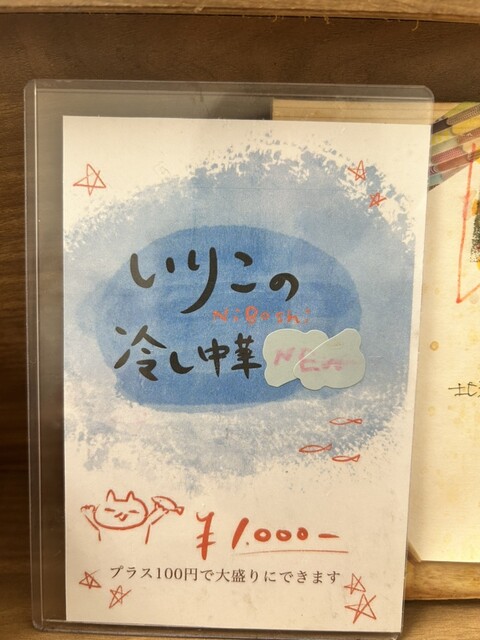 いりこの
Niboshi
冷し中華
NEW
¥1.000-
プラス100円で大盛りにできます